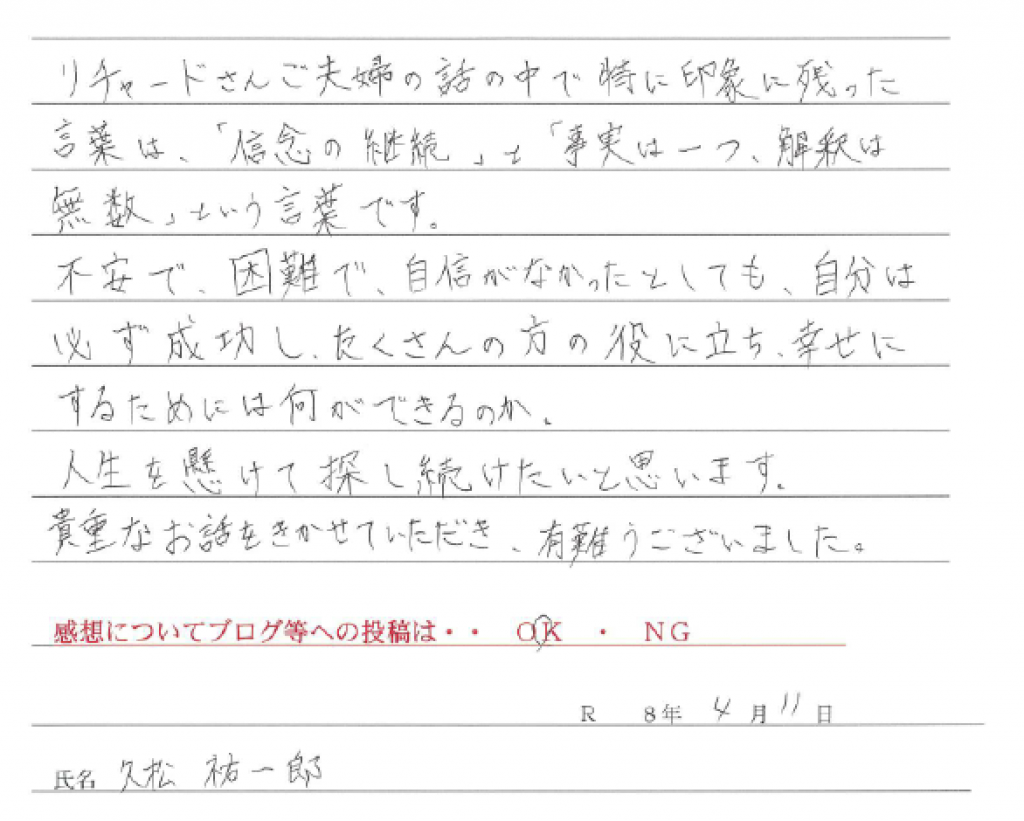 リチャードさんご夫婦の話の中で特に印象に残った
言葉は、「信念の継続」と「事実は一つ、解釈は
無数」という言葉です。
不安で、困難で、自信がなかったとしても、自分は
必ず成功し、たくさんの方の役に立ち、幸せに
するためには何ができるのか。
人生を懸けて探し続けたいと思います。
貴重なお話をきかせていただき、有難うございました。
感想についてブログ等への投稿は・・ OK ・ NG
R 8年 4月 11日
氏名 久松 祐一郎